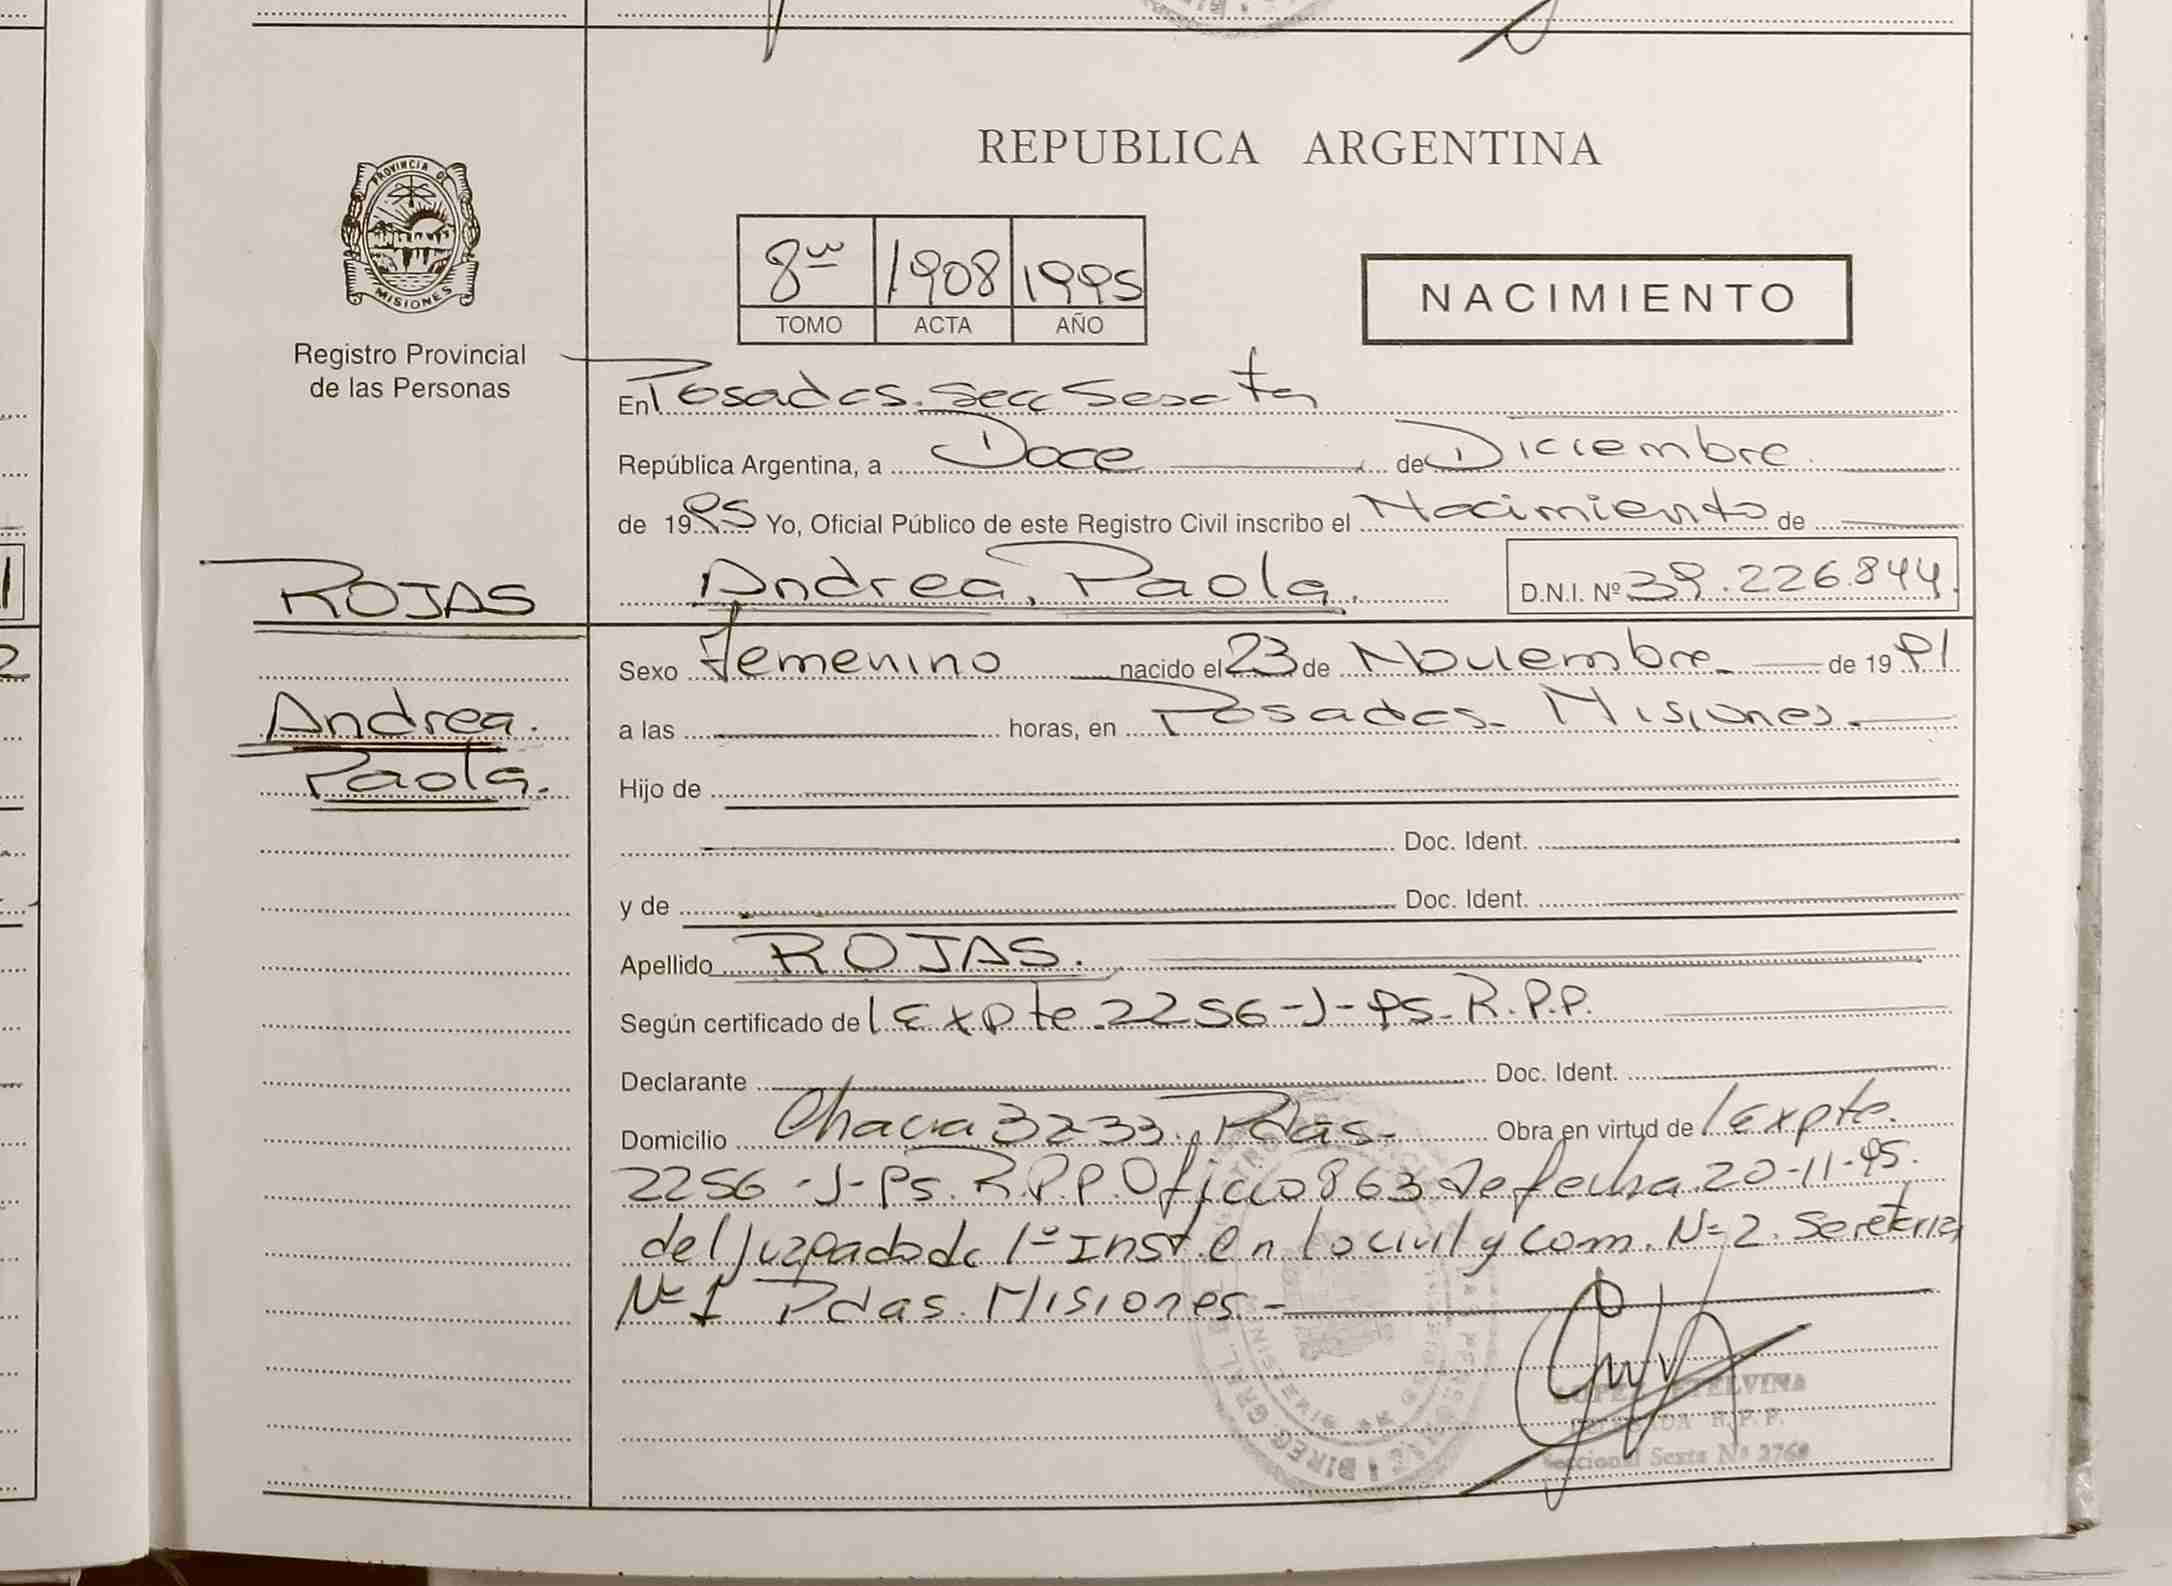 REPUBLICA ARGENTINA
PROVINCIA DE
MISIONES
Registro Provincial
de las Personas
8vo 1908 1995
TOMO ACTA AÑO
NACIMIENTO
En Posadas. Secc Sexta
República Argentina, a Doce de Diciembre.
de 1995 Yo, Oficial Público de este Registro Civil inscribo el Nacimiento de
ROJAS
Andrea. Paola. D.N.I. Nº 39.226.844.
Sexo Femenino nacido el 23 de Noviembre de 1991
Andrea.
Paola.
a las horas, en Posadas- Misiones.
Hijo de
Doc. Ident.
y de Doc. Ident.
Apellido ROJAS.
Según certificado de Expte. 2256-J-95-R.P.P.
Declarante Doc. Ident.
Domicilio 3233. Pdas- Obra en virtud de Expte.
2256-J-95. R.P.P. Oficio 863 de fecha 20-11-95.
del Juzgado de 1º Inst. en lo civil y Com. Nº 2. Secretaria
Nº 1 Pdas. Misiones.-
LOPEZ ETELVINA
R. P. P.
Seccional Sexta Nº 2768